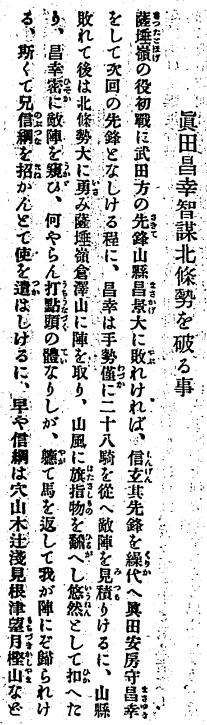 眞田昌幸智謀北條勢を破る事
薩埵嶺の役初戰に武田方の先鋒山縣昌景大に敗れければ、信玄其先鋒を繰代へ眞田安房守昌幸
をして次回の先鋒となしける程に、昌幸は手勢僅に二十八騎を從へ敵陣を見積りけるに、山縣
敗れて後は北條勢大に勇み薩埵嶺倉澤山に陣を取り、山風に旗指物を飜へし悠然として扣へた
り、昌幸密に敵陣を窺ひ、何やらん打點頭の體なりしが、軈て馬を返して我が陣にぞ歸られけ
る、斯くて兄信綱を招かんとて使を遣はしけるに、早や信綱は穴山木辻淺見根津望月樫山など